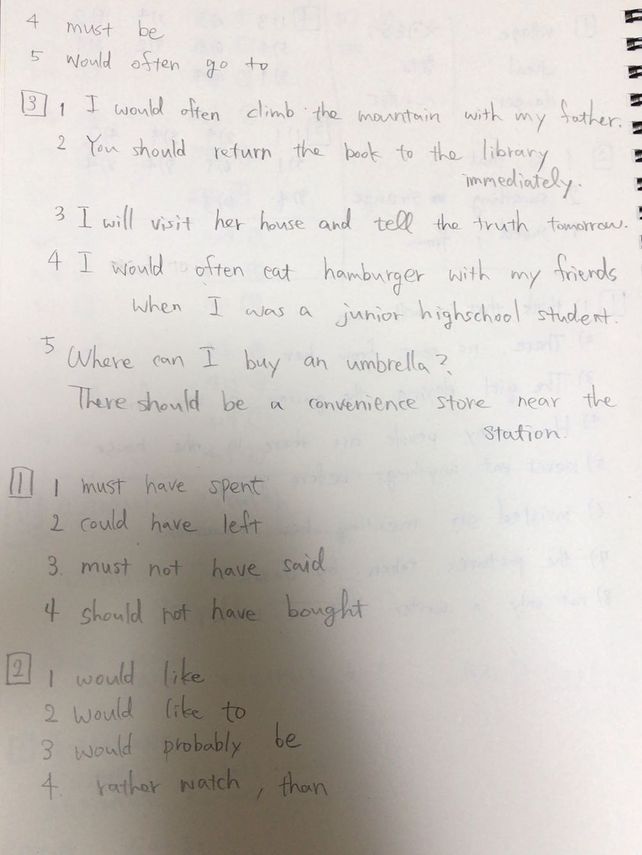 4 must be
5 would often go to
3 1 I would often climb the mountain with my father.
2 You should return the book to the library
immediately.
3 I will visit her house and tell the truth tomorrow.
4 I would often eat hamburger with my friends
when I was a junior highschool student.
5 Where can I buy an umbrella?
There should be a convenience store near the
station.
1 1 must have spent
2 could have left
3. must not have said
4 should not have bought
2 1 would like
2 would like to
3 would probably be
4. rather watch, than